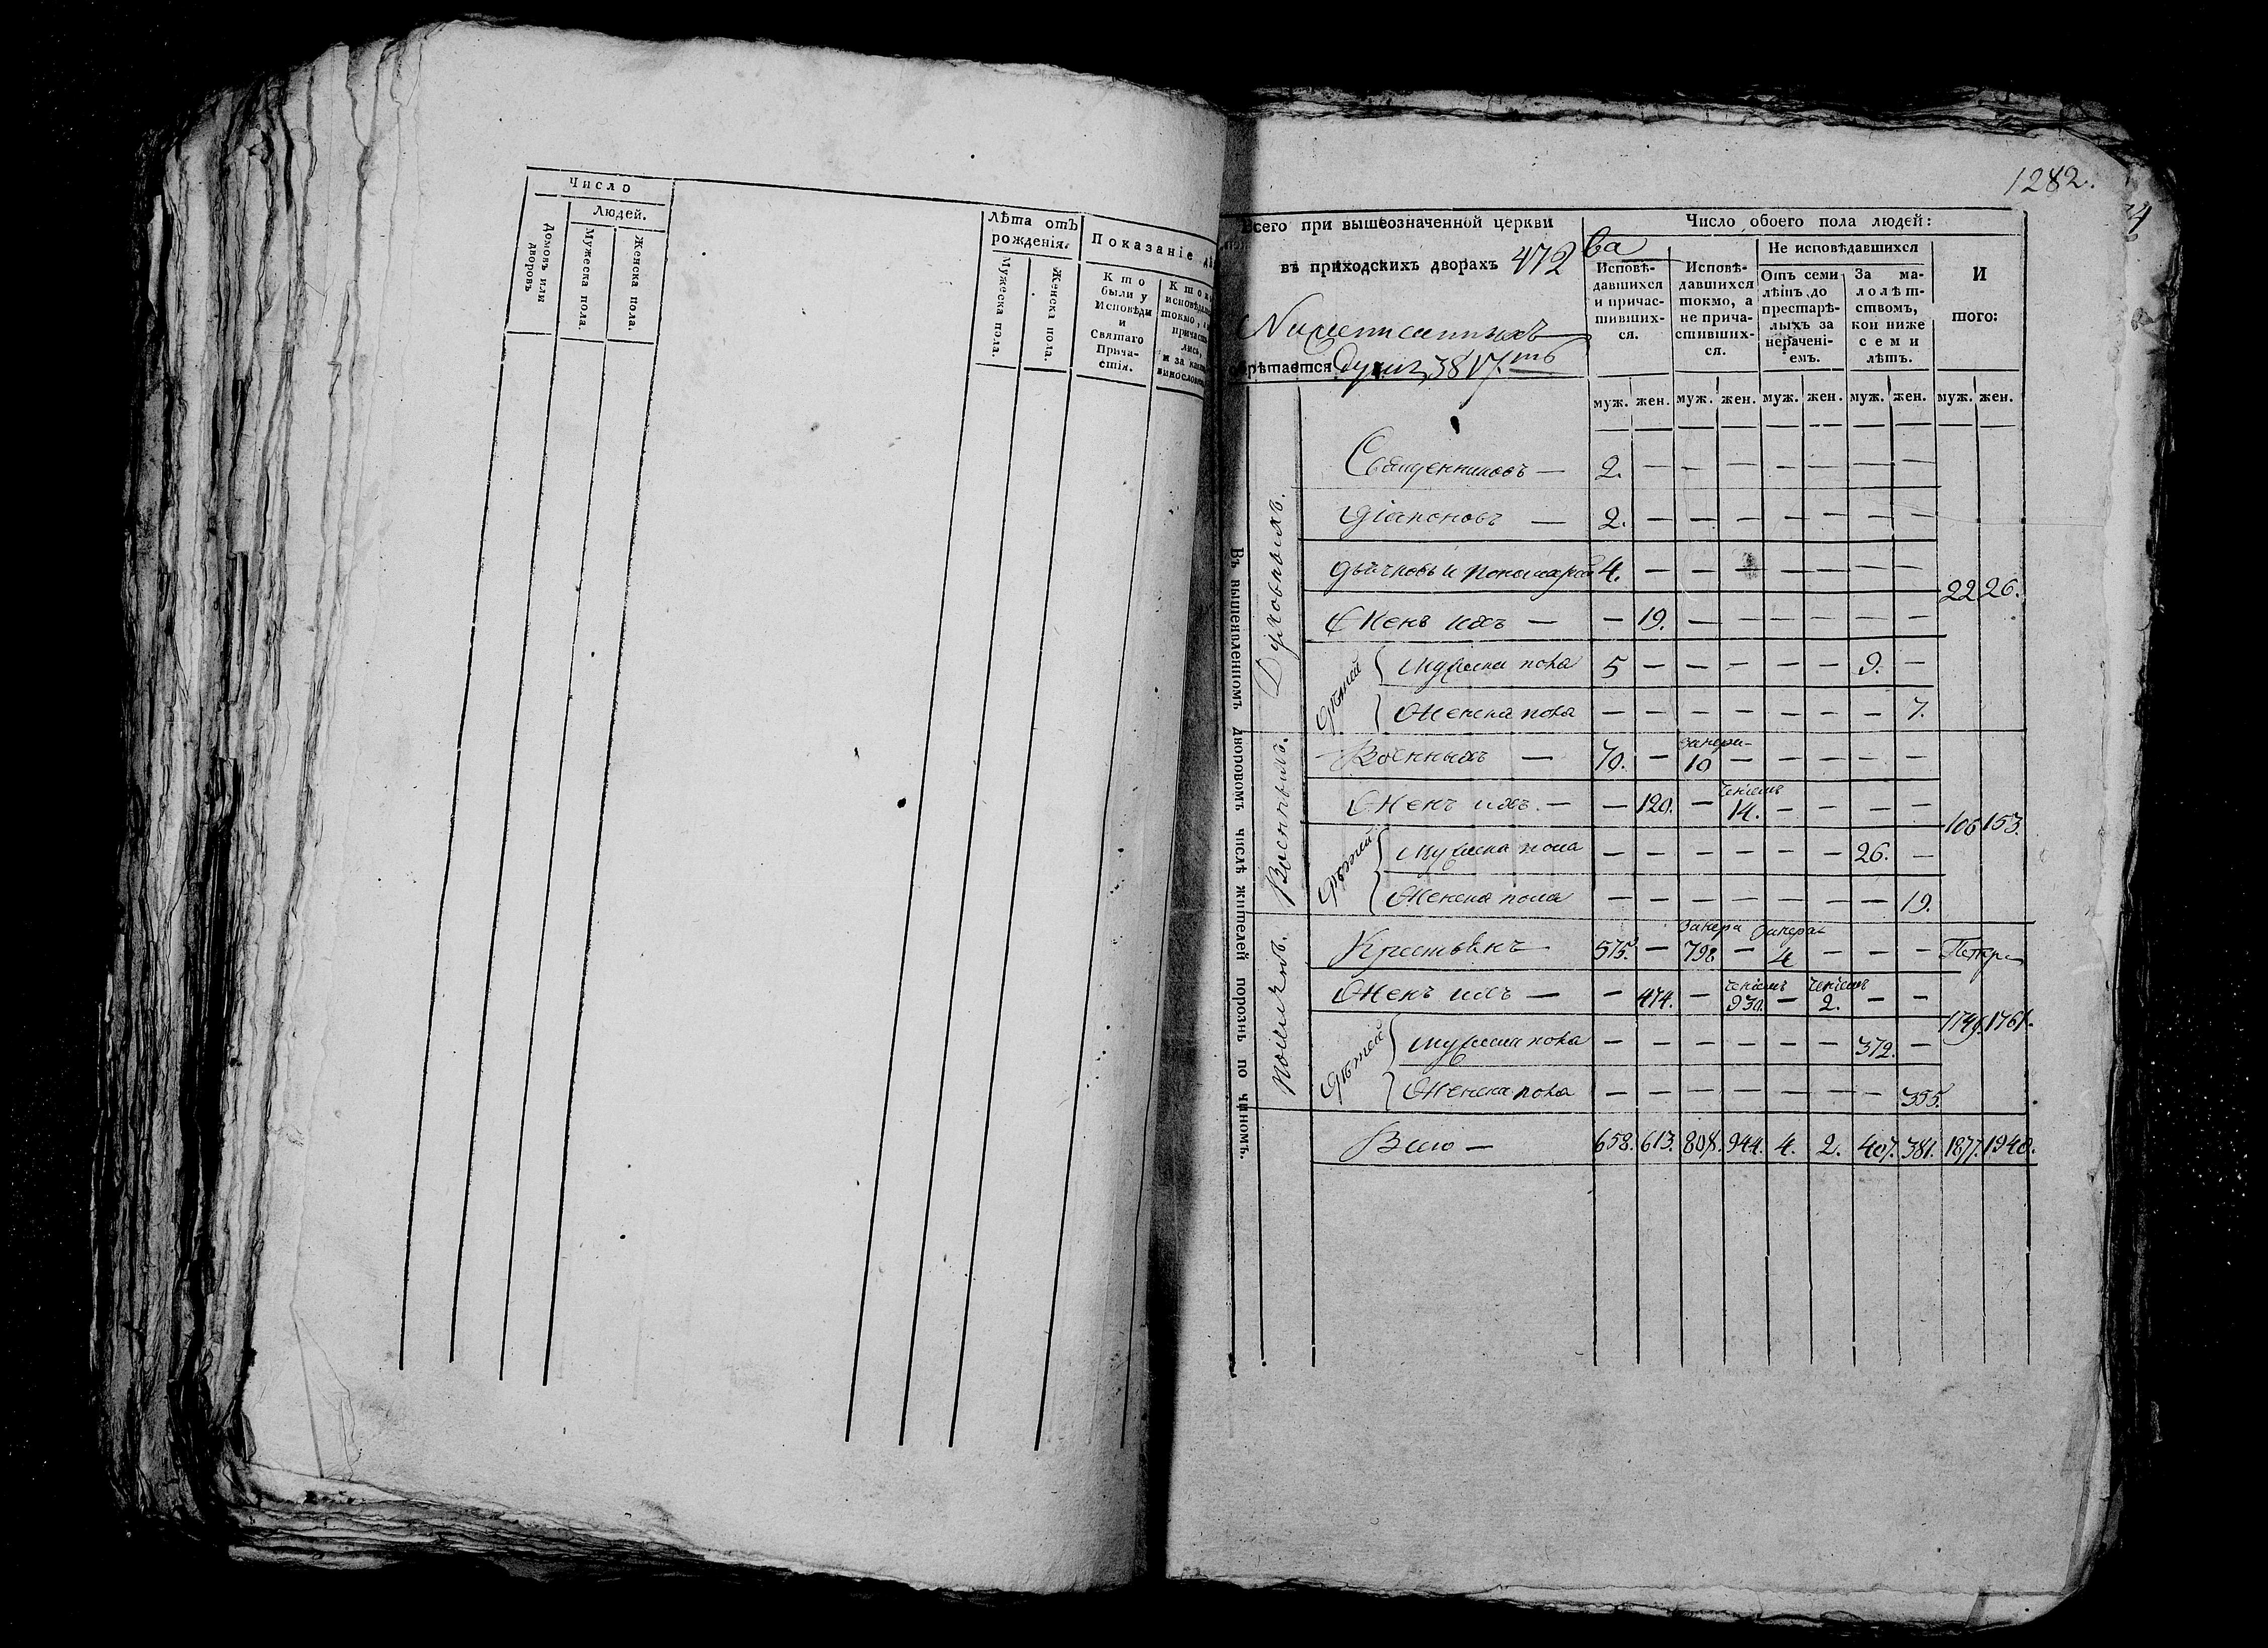 Число
Людей.
Домовъ или дворовъ
Мужеска пола.
Женска пола.
Лѣта отъ рожденія.
Мужеска пола.
Женска пола.
Показаніе дѣ
Кто были у Исповѣди и Святаго Причастія.
1282.
Всего при вышеозначенной церкви
въ приходскихъ дворахъ 472
душъ 3817.
Число обоего пола людей:
Исповѣдавшихся и причастившихся.
Исповѣдавшихся токмо, а не причастившихся.
Не исповѣдавшихся
Отъ семи лѣтъ до престарѣлыхъ за нерачені-емъ.
За малолѣтствомъ, кои ниже семи лѣтъ.
Итого:
муж. жен. муж. жен. муж. жен. муж. жен. муж. жен.
Въ вышеявленномъ дворовомъ числѣ жителей порознь по чиномъ.
Духовныхъ.
Священниковъ — 2. — — — — — — —
Діаконовъ — 2. — — — — — — —
Дьячковъ и Пономарей 4. — — — — — — —
22 26.
Женъ ихъ — — 19. — — — — — —
Дѣтей
Мужеска пола 5 — — — — — 9. —
Женска пола — — — — — — — 7.
Военныхъ.
Военныхъ — 70. — 10 — — — — —
Женъ ихъ — — 120. — 14. — — — —
106 153.
Дѣтей
Мужеска пола — — — — — — 26. —
Женска пола — — — — — — — 19.
Крестьянъ 575. — 798 — 4 — — —
Женъ ихъ — — 474. — 930. — 2. — —
1749. 1761.
Дѣтей
Мужеска пола — — — — — — 372. —
Женска пола — — — — — — — 355.
Всего — 658. 613. 808. 944. 4. 2. 407. 381. 1877. 1940.